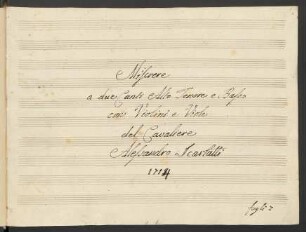 Miserere
a due Canti Alto Tenore e Basso
con Violini e Viola
del Cavaliere
Alessandro Scarlatti
1714